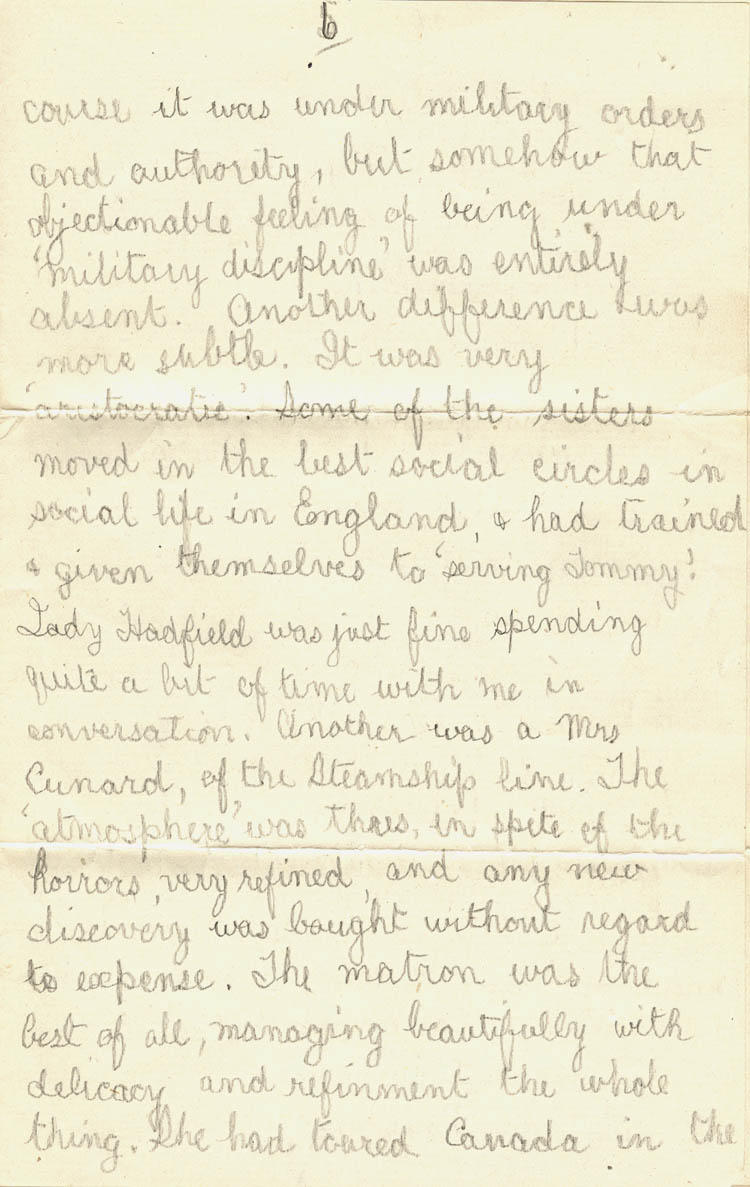 6
course it was under military orders
and authority, but somehow that
objectionable feeling of being under
'military discipline' was entirely
absent. Another difference was
more subtle. It was very
'aristocratic'. Some of the sisters
moved in the best social circles in
social life in England, & had trained
& given themselves to 'serving Tommy'.
Lady Hadfield was just fine spending
quite a bit of time with me in
conversation. Another was a Mrs
Cunard, of the Steamship line. The
'atmosphere' was in spite of the
horrors, very refined, and any new
discovery was bought without regard
to expense. The matron was the
best of all, managing beautifully with
delicacy and refinment the whole
thing. She had toured Canada in the